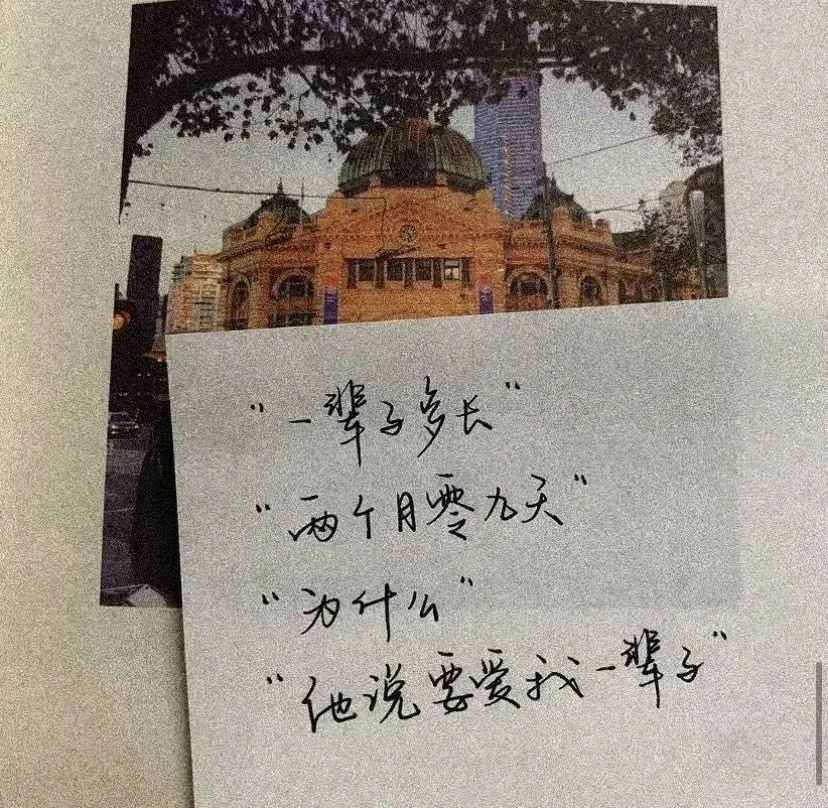 “一辈子多长”
“两个月零九天”
“为什么”
“他说要爱我一辈子”